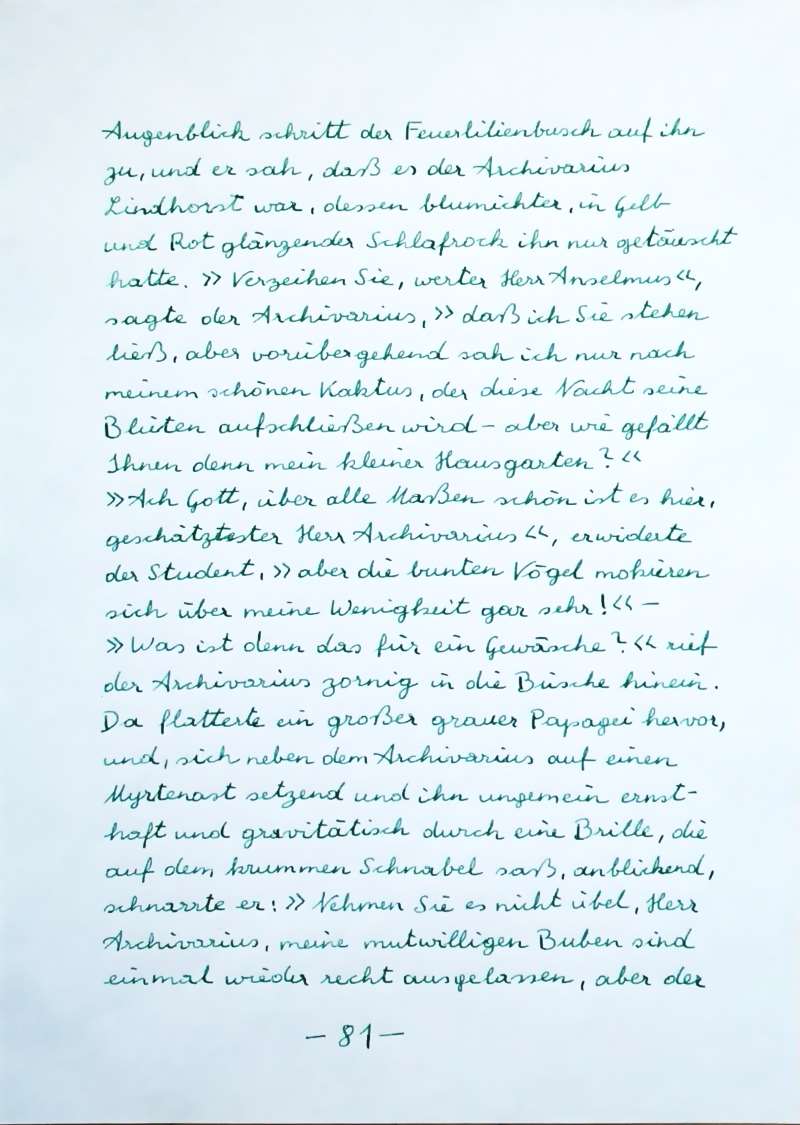 Augenblick schritt der Feuerlilienbusch auf ihn
zu, und er sah, daß es der Archivarius
Lindhorst war, dessen blumichter, in Gelb
und Rot glänzender Schlafrock ihn nur getäuscht
hatte. »Verzeihen Sie, werter Herr Anselmus«,
sagte der Archivarius, »daß ich Sie stehen
ließ, aber vorübergehend sah ich nur nach
meinem schönen Kaktus, der diese Nacht seine
Blüten aufschließen wird – aber wie gefällt
Ihnen denn mein kleiner Hausgarten?«
»Ach Gott, über alle Maßen schön ist es hier,
geschätztester Herr Archivarius«, erwiderte
der Student, »aber die bunten Vögel mokieren
sich über meine Wenigkeit gar sehr!« –
»Was ist denn das für ein Gewäsche?« rief
der Archivarius zornig in die Büsche hinein.
Da flatterte ein großer grauer Papagei hervor,
und, sich neben dem Archivarius auf einen
Myrtenast setzend und ihn ungemein ernst-
haft und gravitätisch durch eine Brille, die
auf dem krummen Schnabel saß, anblickend,
schnarrte er: »Nehmen Sie es nicht übel, Herr
Archivarius, meine mutwilligen Buben sind
einmal wieder recht ausgelassen, aber der
– 81 –